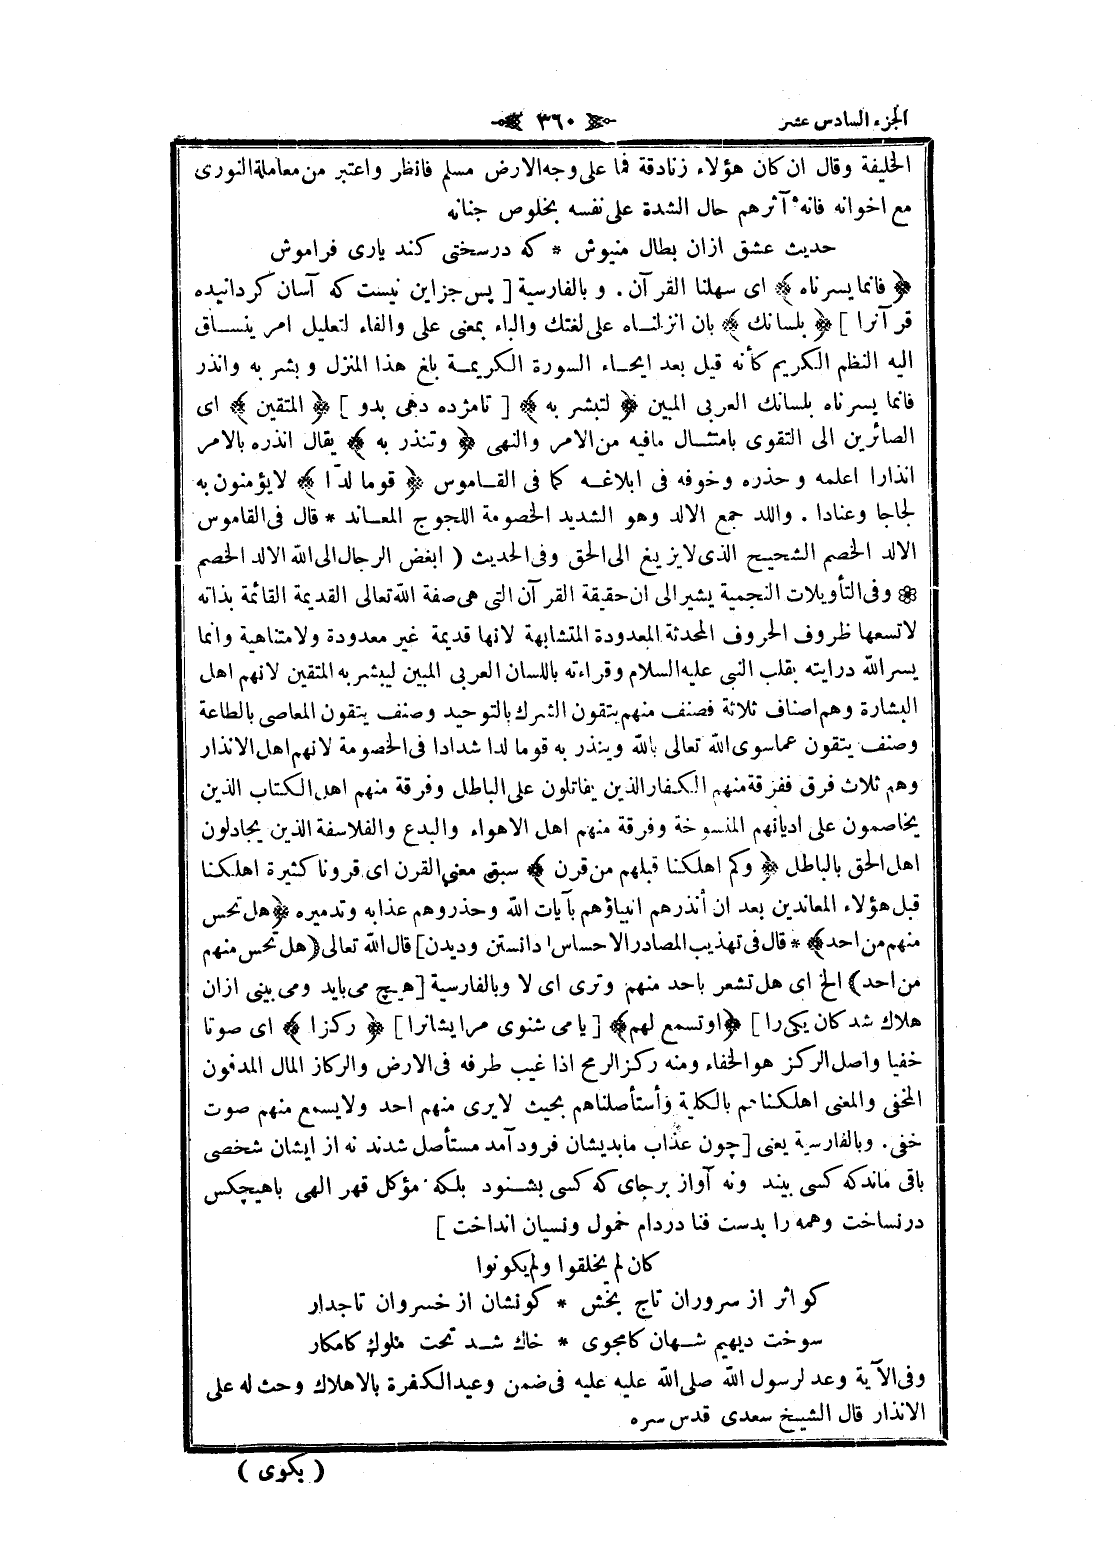 الجزء السادس عشر
٣٦٠
الخليفة وقال ان كان هؤلاء زنادقة فما على وجه الارض مسلم فانظر واعتبر من معاملة النورى
مع اخوانه فانه آثرهم حال الشدة على نفسه بخلوص جنانه
حديث عشق ازان بطال منيوش * كه درسختى كند يارى فراموش
﴿ فانما يسرناه ﴾ اى سهلنا القرآن . و بالفارسية [ پس جزاين نيست كه آسان كردانيده
قرآنرا ] ﴿ بلسانك ﴾ بان انزلناه على لغتك والباء بمعنى على والفاء لتعليل امر ينساق
اليه النظم الكريم كأنه قيل بعد ايحاء السورة الكريمة بلغ هذا المنزل وبشر به وانذر
فانما يسرناه بلسانك العربى المبين ﴿ لتبشر به ﴾ [ تامژده دهى بدو ] ﴿ المتقين ﴾ اى
الصائرين الى التقوى بامتثال مافيه من الامر والنهى ﴿ وتنذر به ﴾ يقال انذره بالامر
انذارا اعلمه و حذره وخوفه فى ابلاغه كما فى القاموس ﴿ قوما لدّا ﴾ لايؤمنون به
لجاجا وعنادا . واللد جمع الالد وهو الشديد الخصومة اللجوج المعاند * قال فى القاموس
الالد الخصم الشحيح الذى لايزيغ الى الحق وفى الحديث ( ابغض الرجال الى الله الالد الخصم
❁ وفى التأويلات النجمية يشير الى ان حقيقة القرآن التى هى صفة الله تعالى القديمة القائمة بذاته
لاتسعها ظروف الحروف المحدثة المعدودة المتشابهة لانها قديمة غير معدودة ولامتناهية وانما
يسر الله درايته بقلب النبى عليه السلام وقراءته باللسان العربى المبين ليبشر به المتقين لانهم اهل
البشارة وهم اصناف ثلاثة فصنف منهم يتقون الشرك بالتوحيد وصنف يتقون المعاصى بالطاعة
وصنف يتقون عماسوى الله تعالى بالله وينذر به قوما لدا شدادا فى الخصومة لانهم اهل الانذار
وهم ثلاث فرق ففرقة منهم الكفار الذين يقاتلون على الباطل وفرقة منهم اهل الكتاب الذين
يخاصمون على اديانهم المنسوخة وفرقة منهم اهل الاهواء والبدع والفلاسفة الذين يجادلون
اهل الحق بالباطل ﴿ وكم اهلكنا قبلهم من قرن ﴾ سبق معنى القرن اى قرونا كثيرة اهلكنا
قبل هؤلاء المعاندين بعد ان أنذرهم انبياؤهم بآيات الله وحذروهم عذابه وتدميره ﴿ هل تحس
منهم من احد ﴾ * قال فى تهذيب المصادر الاحساس ا دانستن وديدن ] قال الله تعالى ( هل تحس منهم
من احد ) الخ اى هل تشعر باحد منهم وترى اى لا وبالفارسية [ هيچ مى يابد ومى بينى ازان
هلاك شدكان يكى را ] ﴿ او تسمع لهم ﴾ [ يامى شنوى مرايشانرا ] ﴿ ركزا ﴾ اى صوتا
خفيا واصل الركز هو الخفاء ومنه ركز الرمح اذا غيب طرفه فى الارض والركاز المال المدفون
المخفى والمعنى اهلكناهم بالكلية وأستأصلناهم بحيث لايرى منهم احد ولايسمع منهم صوت
خفى . وبالفارسية يعنى [ چون عذاب مابديشان فرود آمد مستأصل شدند نه از ايشان شخصى
باقى ماندكه كسى بيند ونه آواز برجاى كه كسى بشنود بلكه مؤكل قهر الهى باهيچكس
درنساخت وهمه را بدست فنا دردام خمول ونسيان انداخت ]
كان لم يخلقوا ولم يكونوا
كو اثر از سروران تاج بخش * كونشان از خسروان تاجدار
سوخت ديهيم شهان كامجوى * خاك شد تحت ملوك كامكار
وفى الآية وعد لرسول الله صلى الله عليه عليه فى ضمن وعيد الكفرة بالاهلاك وحث له على
الانذار قال الشيخ سعدى قدس سره
( بكوى )